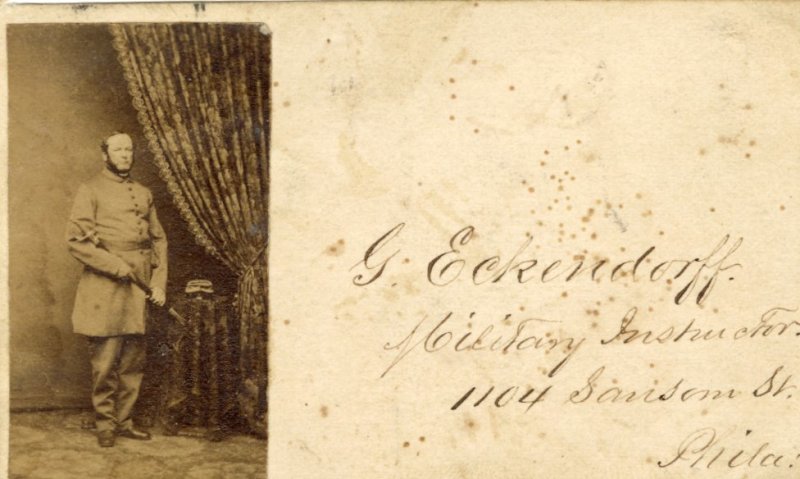 G. Eckendorff.
Military Instructor.
1104 Sansom St.
Phila: